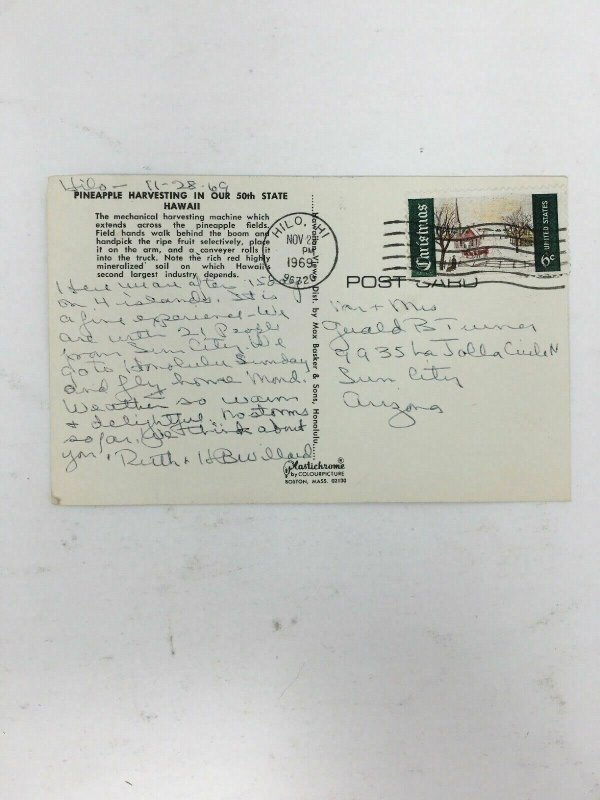 Hilo - 11-28-69
PINEAPPLE HARVESTING IN OUR 50th STATE
HAWAII
The mechanical harvesting machine which
extends across the pineapple fields.
Field hands walk behind the boom and
handpick the ripe fruit selectively, place
it on the arm, and a conveyer rolls it
into the truck. Note the rich red highly
mineralized soil on which Hawaii's
second largest industry, depends.
Here we are after 15 days
on 4 islands. It is
a fine experience. We
are with 21 People
from Sun City. We
go to Honolulu Sunday
and fly home Mond.
Weather so warm
& delightful. no storms
so far. We think about
you. Ruth & HB Willard
Hawaiian Views Dist. by Max Basker & Sons, Honolulu
Plastichrome®
by COLOURPICTURE
BOSTON, MASS. 02130
HILO, HI
NOV 28
PM
1969
96720
Christmas
6c UNITED STATES
POST CARD
Mr + Mrs
Gerald B Turner
9935 La Jolla Circle N
Sun City
Arizona